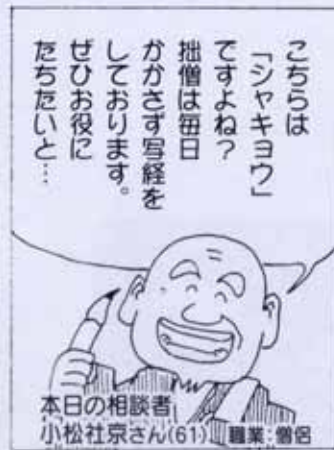 こちらは
「シャキョウ」
ですよね？
拙僧は毎日
かかさず写経を
しております。
ぜひお役に
たちたいと…
本日の相談者
小松社京さん(61) 職業:僧侶